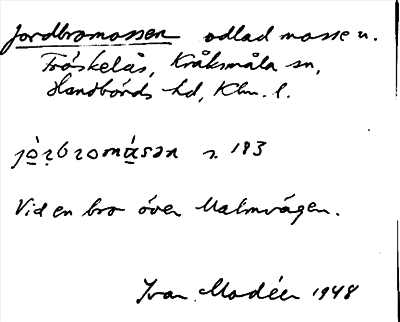 Jordbromossen odlad mosse u.
Tråskelås, Kråksmåla sn,
Handbörds hd, Klm. l.
jo̱rbromåsən s. 183
Vid en bro över Malmvägen.
Ivar Modéer 1948